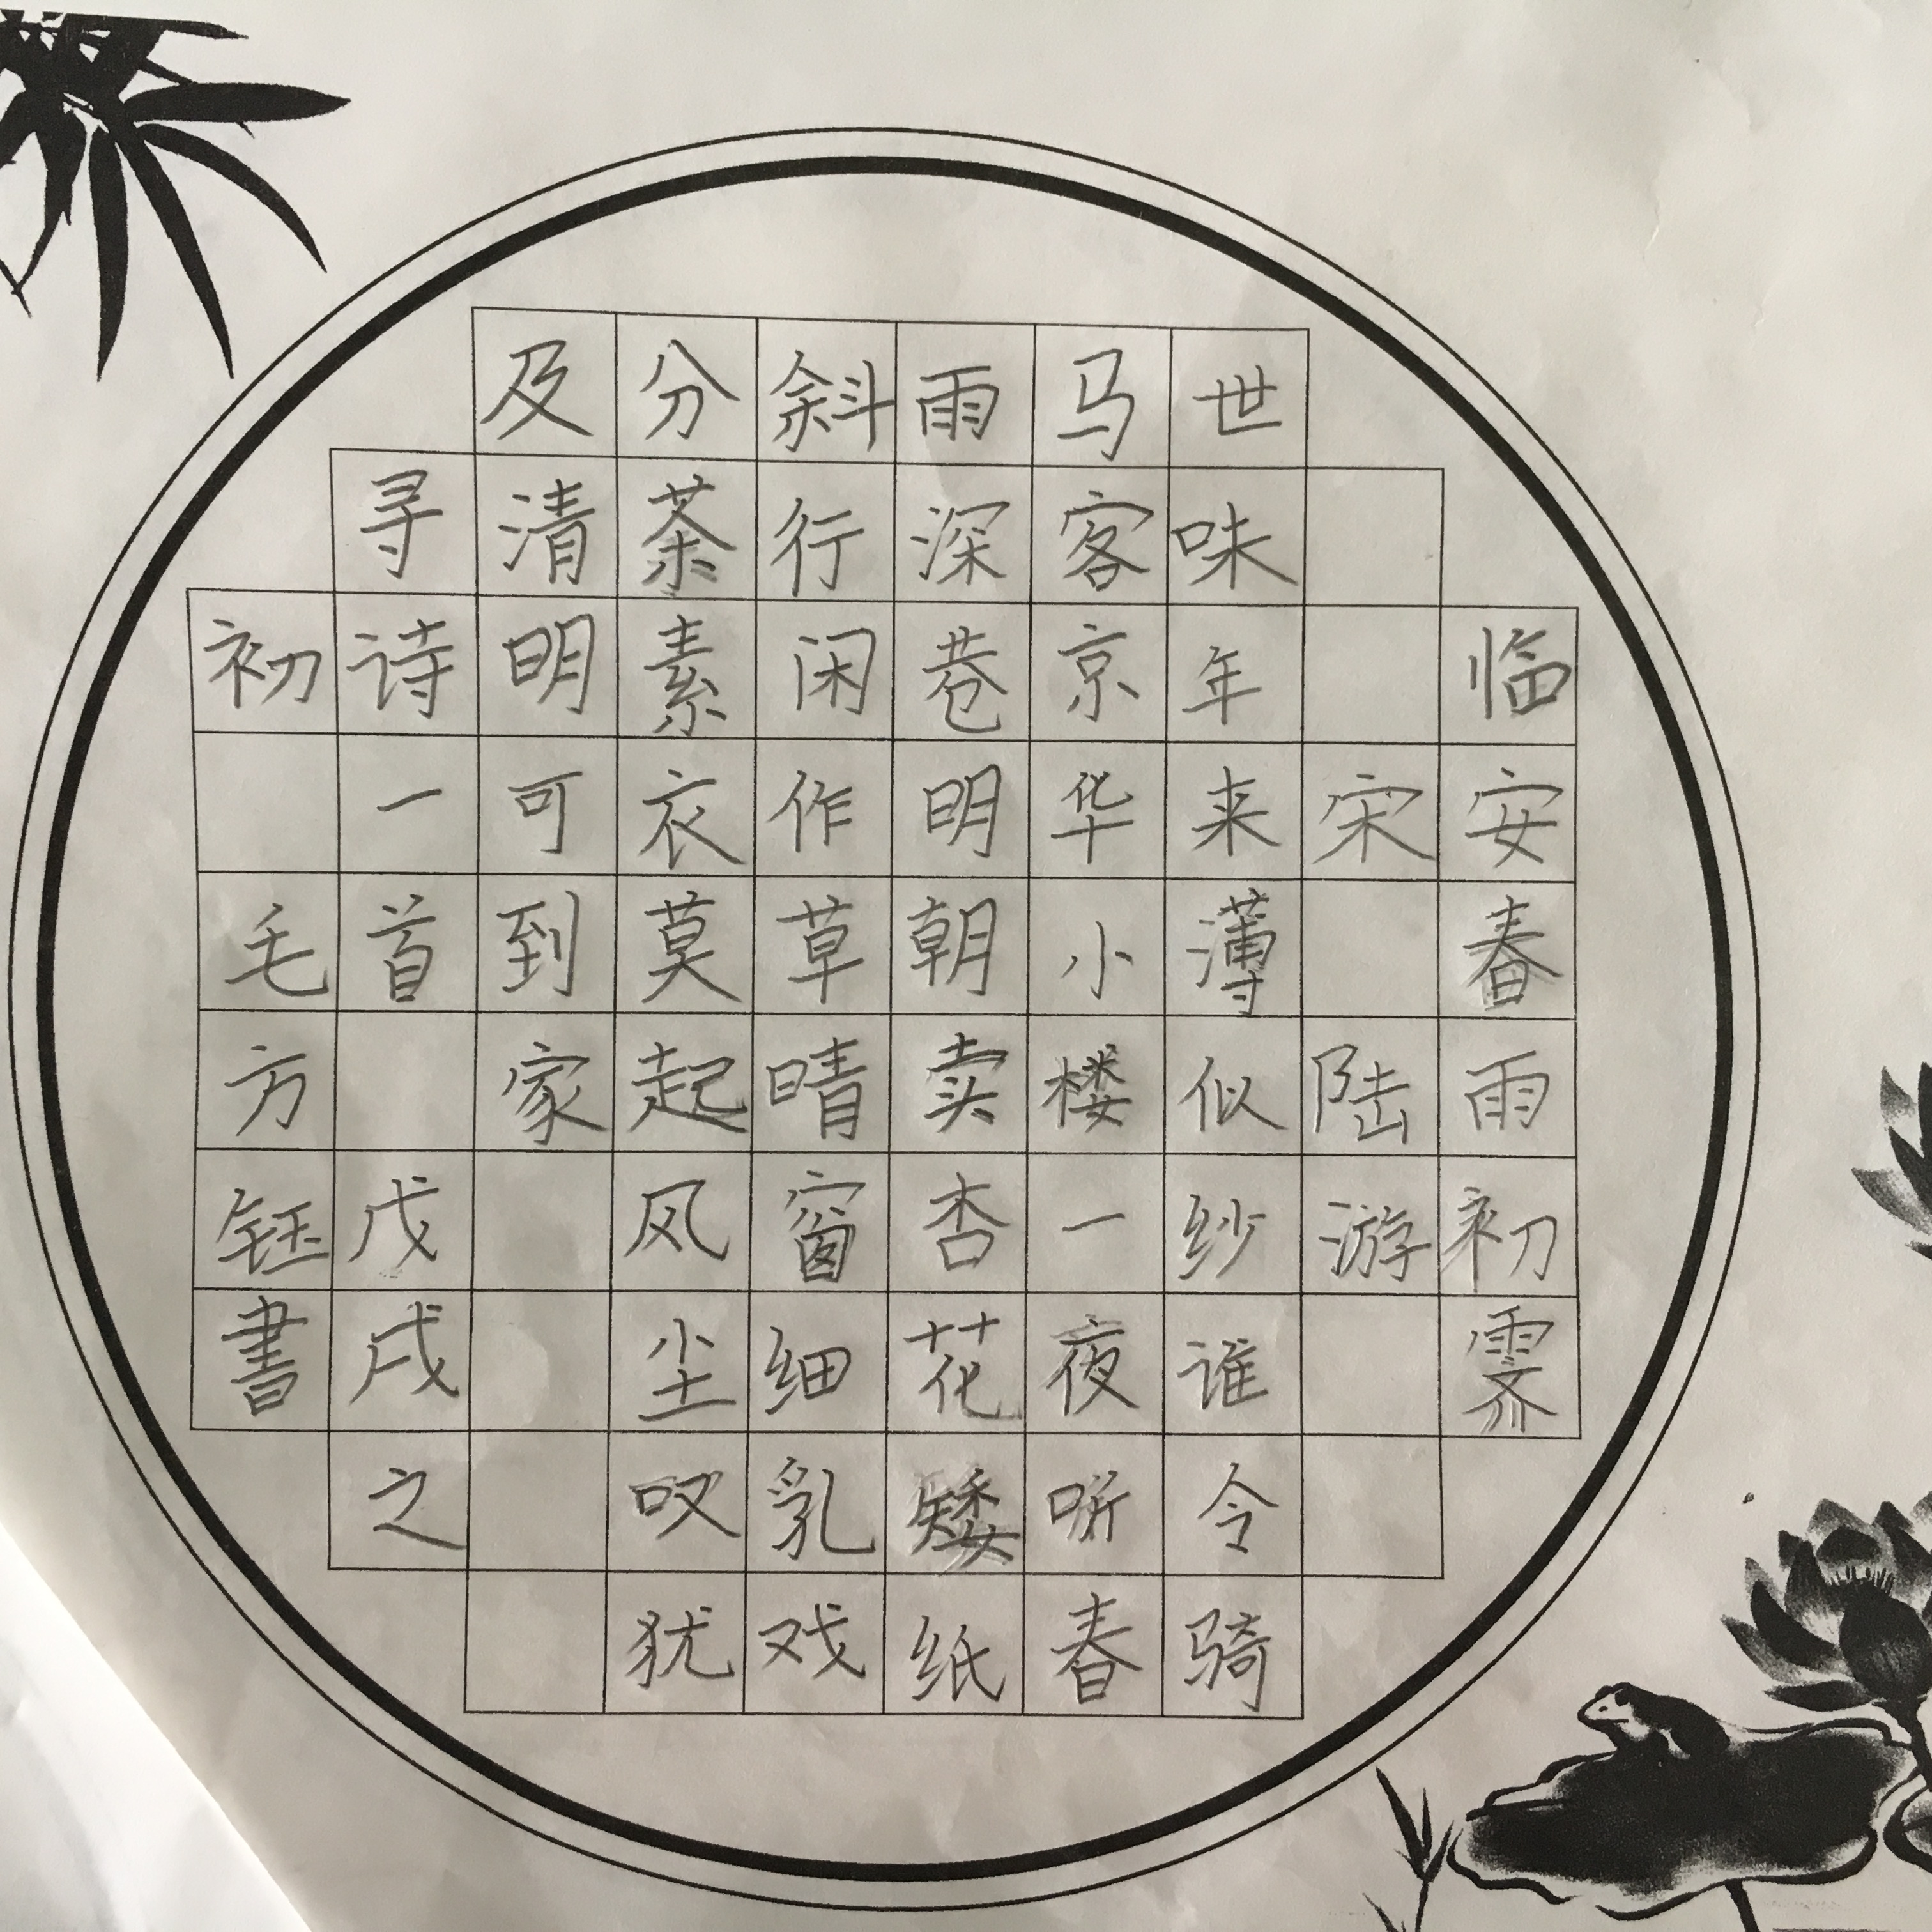 临安春雨初霁
宋 陆游
世味年来薄似纱谁令骑
马客京华小楼一夜听春
雨深巷明朝卖杏花矮纸
斜行闲作草晴窗细乳戏
分茶素衣莫起风尘叹犹
及清明可到家
寻诗一首 戊戌之
初 毛方钰書